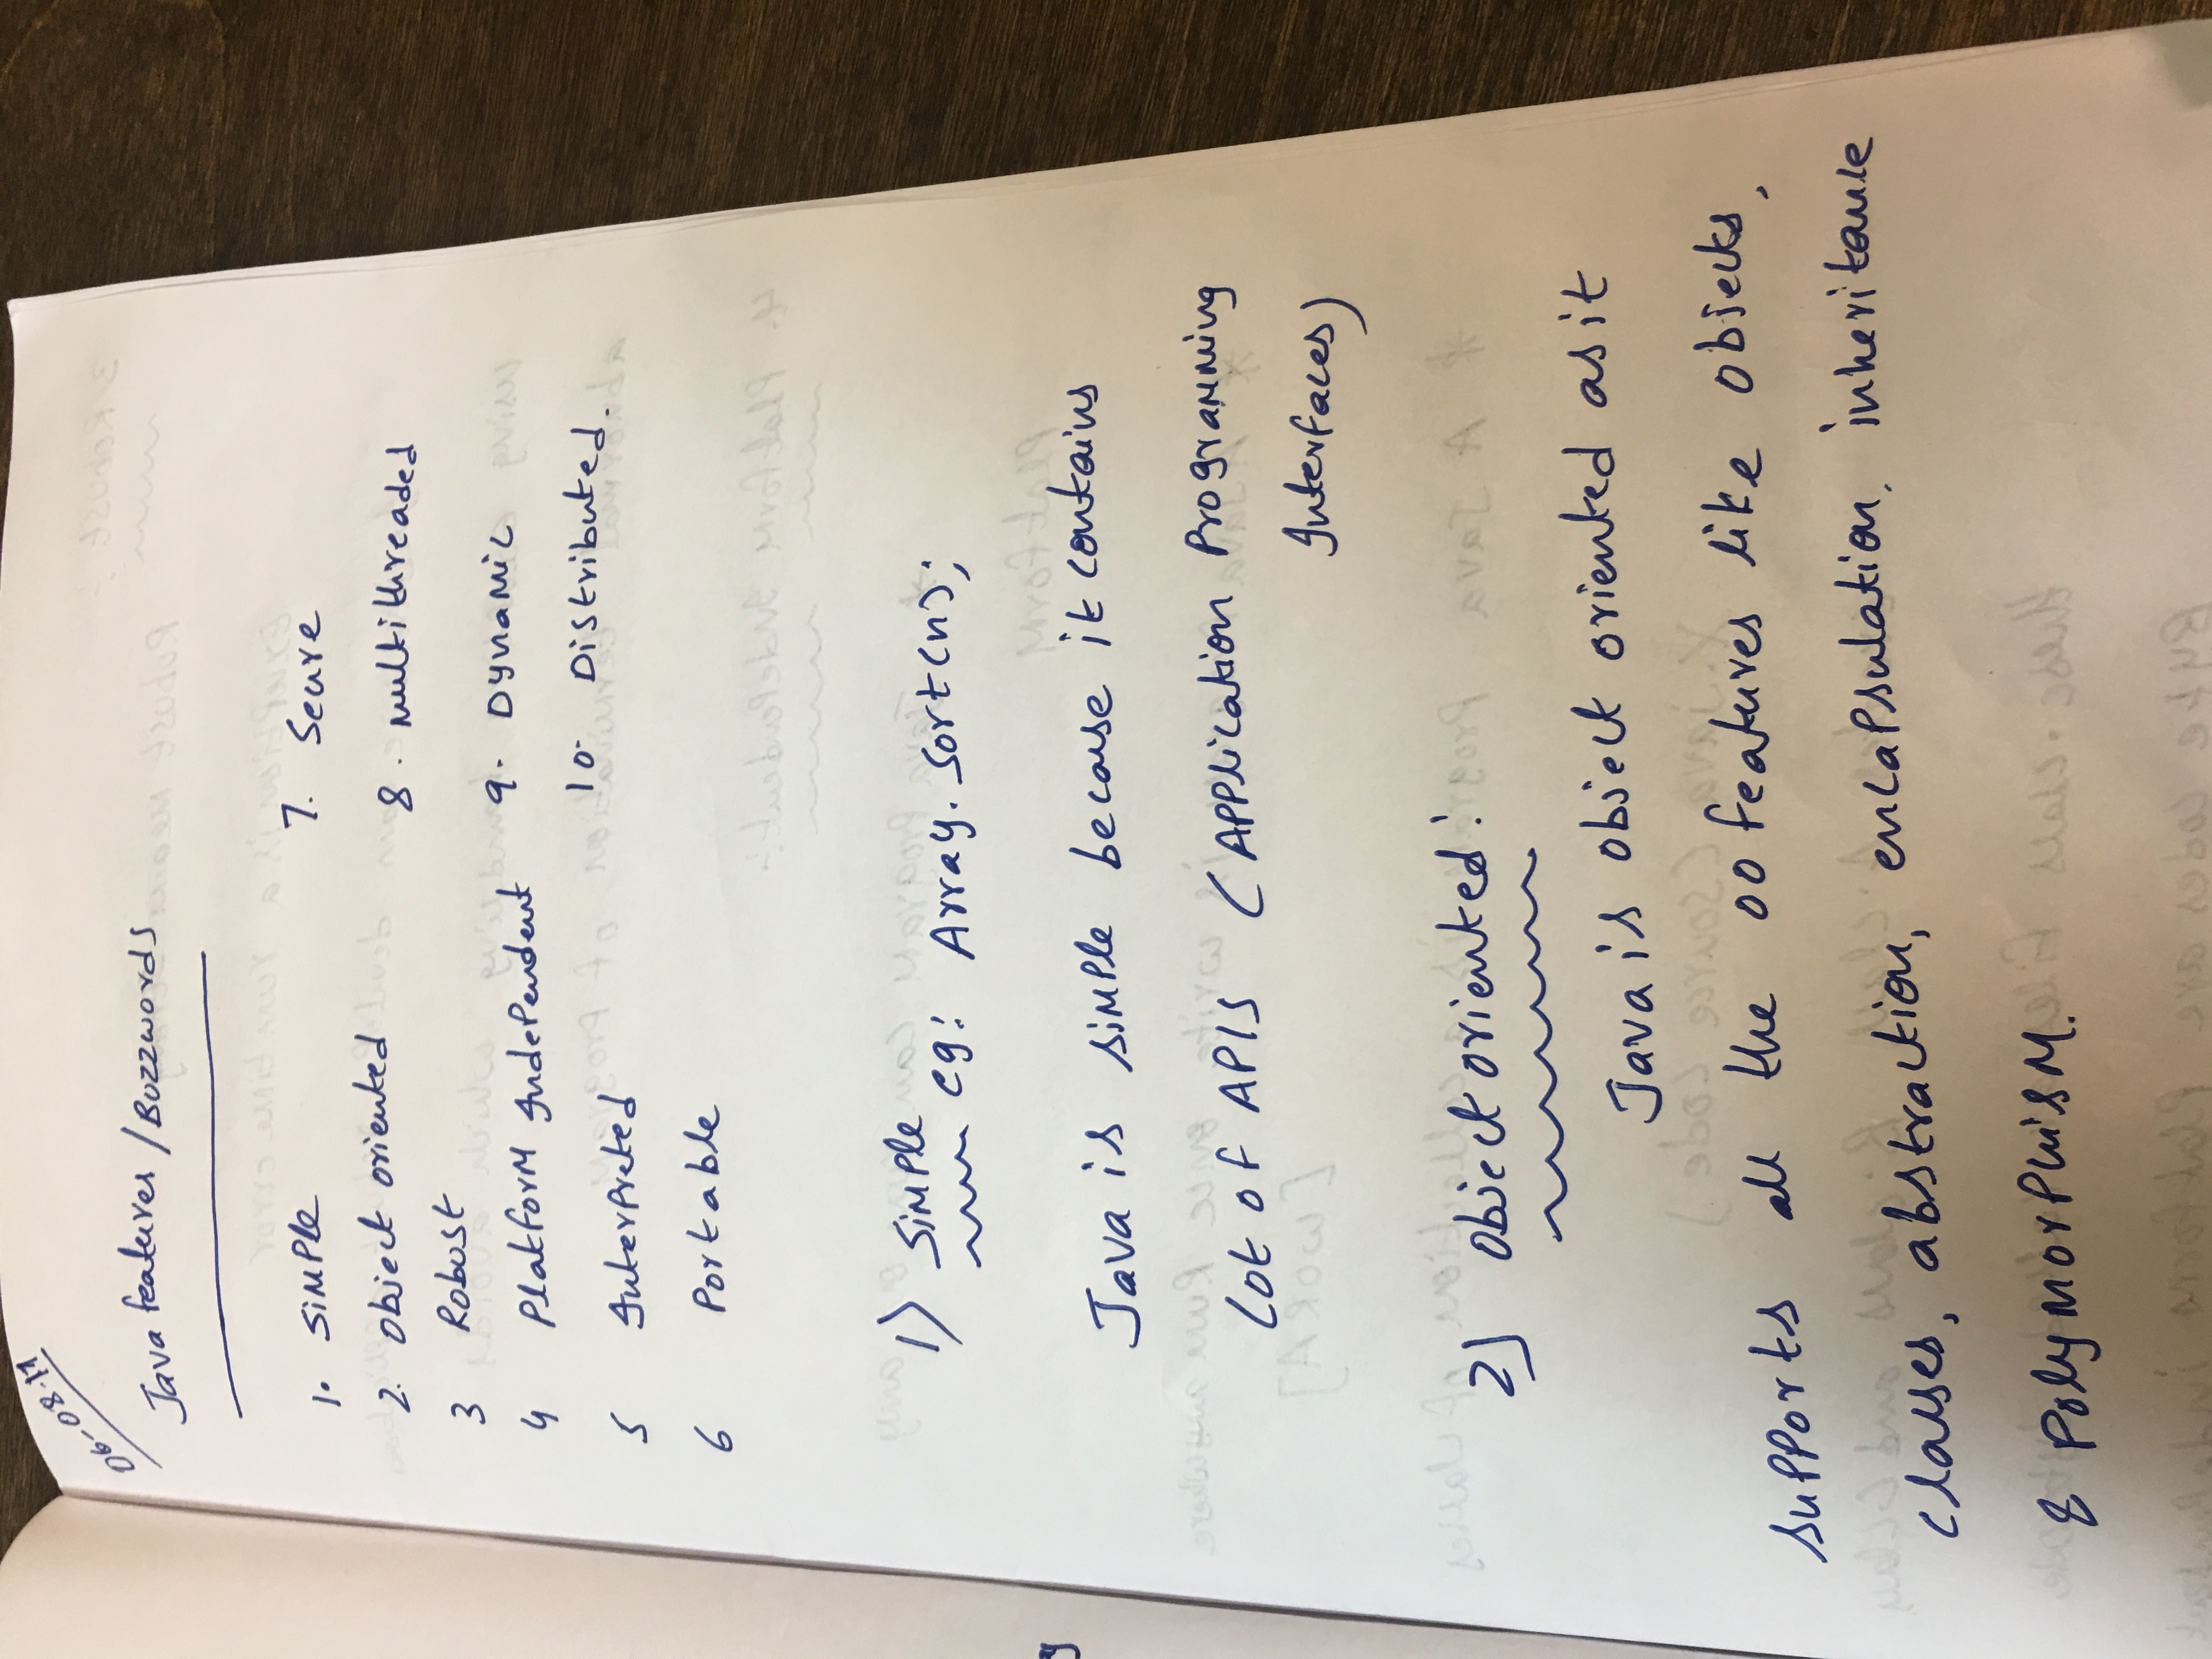 06-08-17
Java features / Buzzwords
1. Simple
2. Object oriented
3 Robust
4 Platform Independent
5 Interpreted
6 Portable
7. Secure
8. Multithreaded
9. Dynamic
10. Distributed.
1) Simple
eg: Array.sort(n);
Java is simple because it contains
Lot of APIs (Application Programming
Interfaces)
2) Object oriented:
Java is object oriented as it
supports all the OO features like objects,
classes, abstraction, encapsulation, inheritance
& Polymorphism.